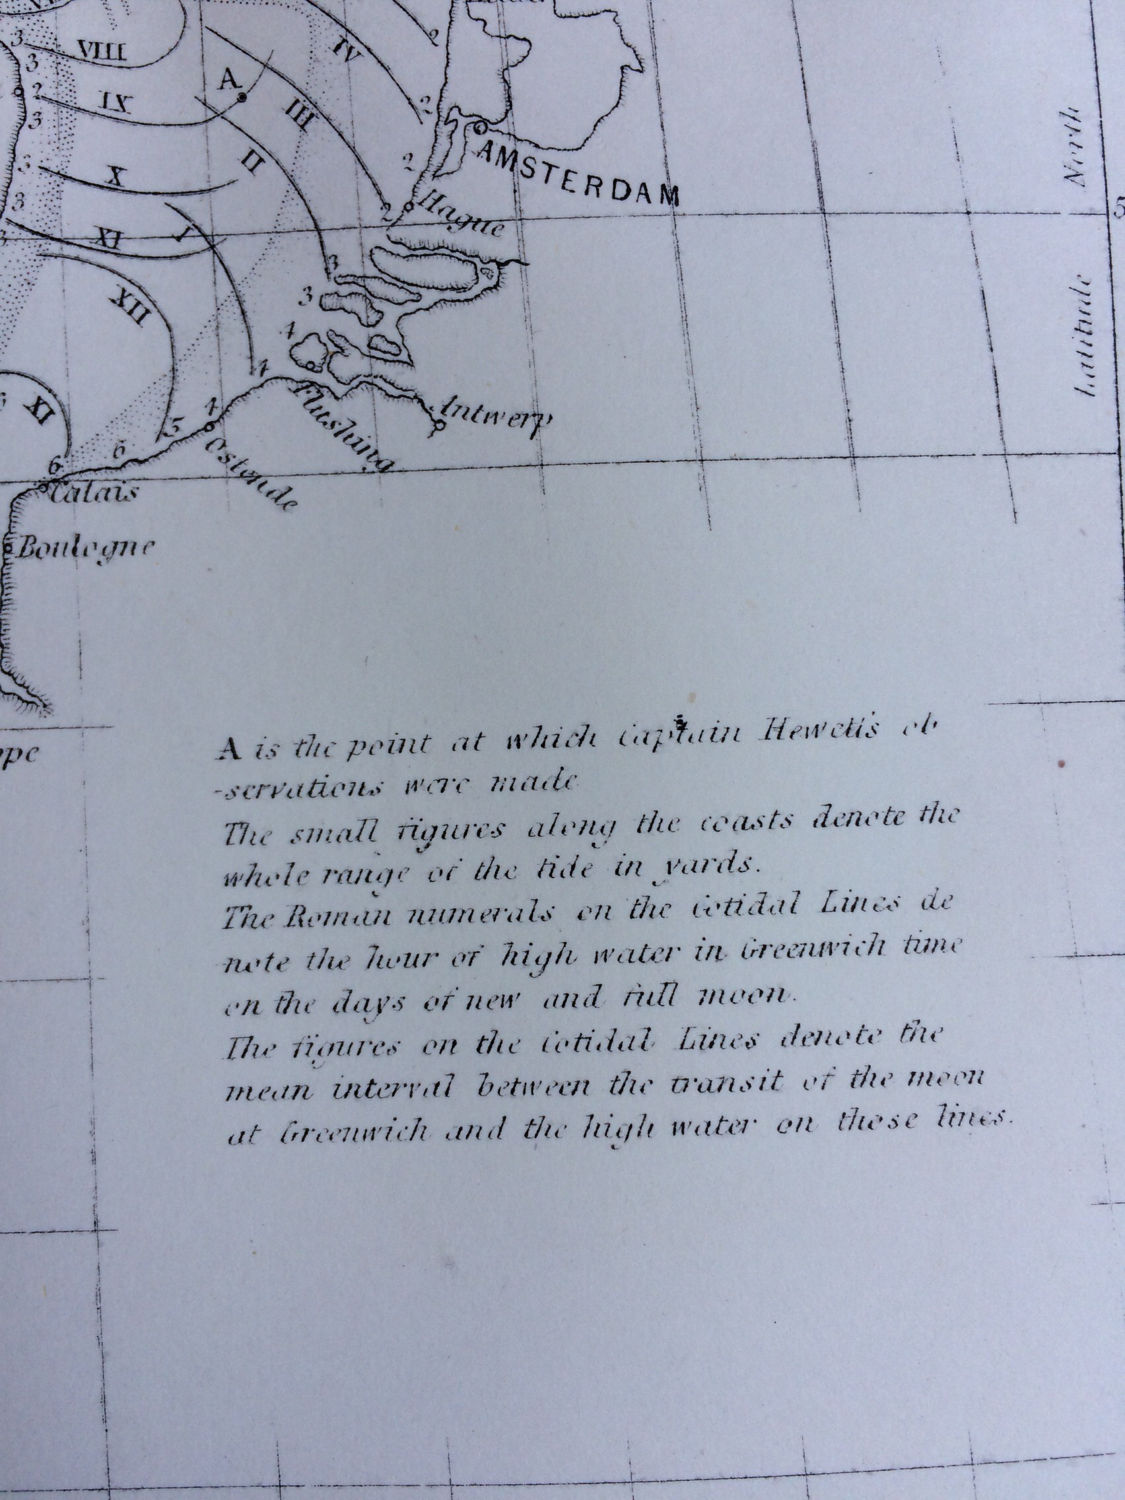 VIII
3
3
2
3
A
IX
IV
III
II
2
2
2
2
AMSTERDAM
Hague
North
3
X
3
3
XI
I
5
3
3
XII
4
4
Latitude
IX
4
5
6
6
Flushing
Antwerp
Ostende
Calais
Boulogne
ppe
A is the point at which Captain Hewett's ob
-servations were made
The small figures along the coasts denote the
whole range of the tide in yards.
The Roman numerals on the Cotidal Lines de
note the hour of high water in Greenwich time
on the days of new and full moon.
The figures on the Cotidal Lines denote the
mean interval between the transit of the moon
at Greenwich and the high water on these lines.